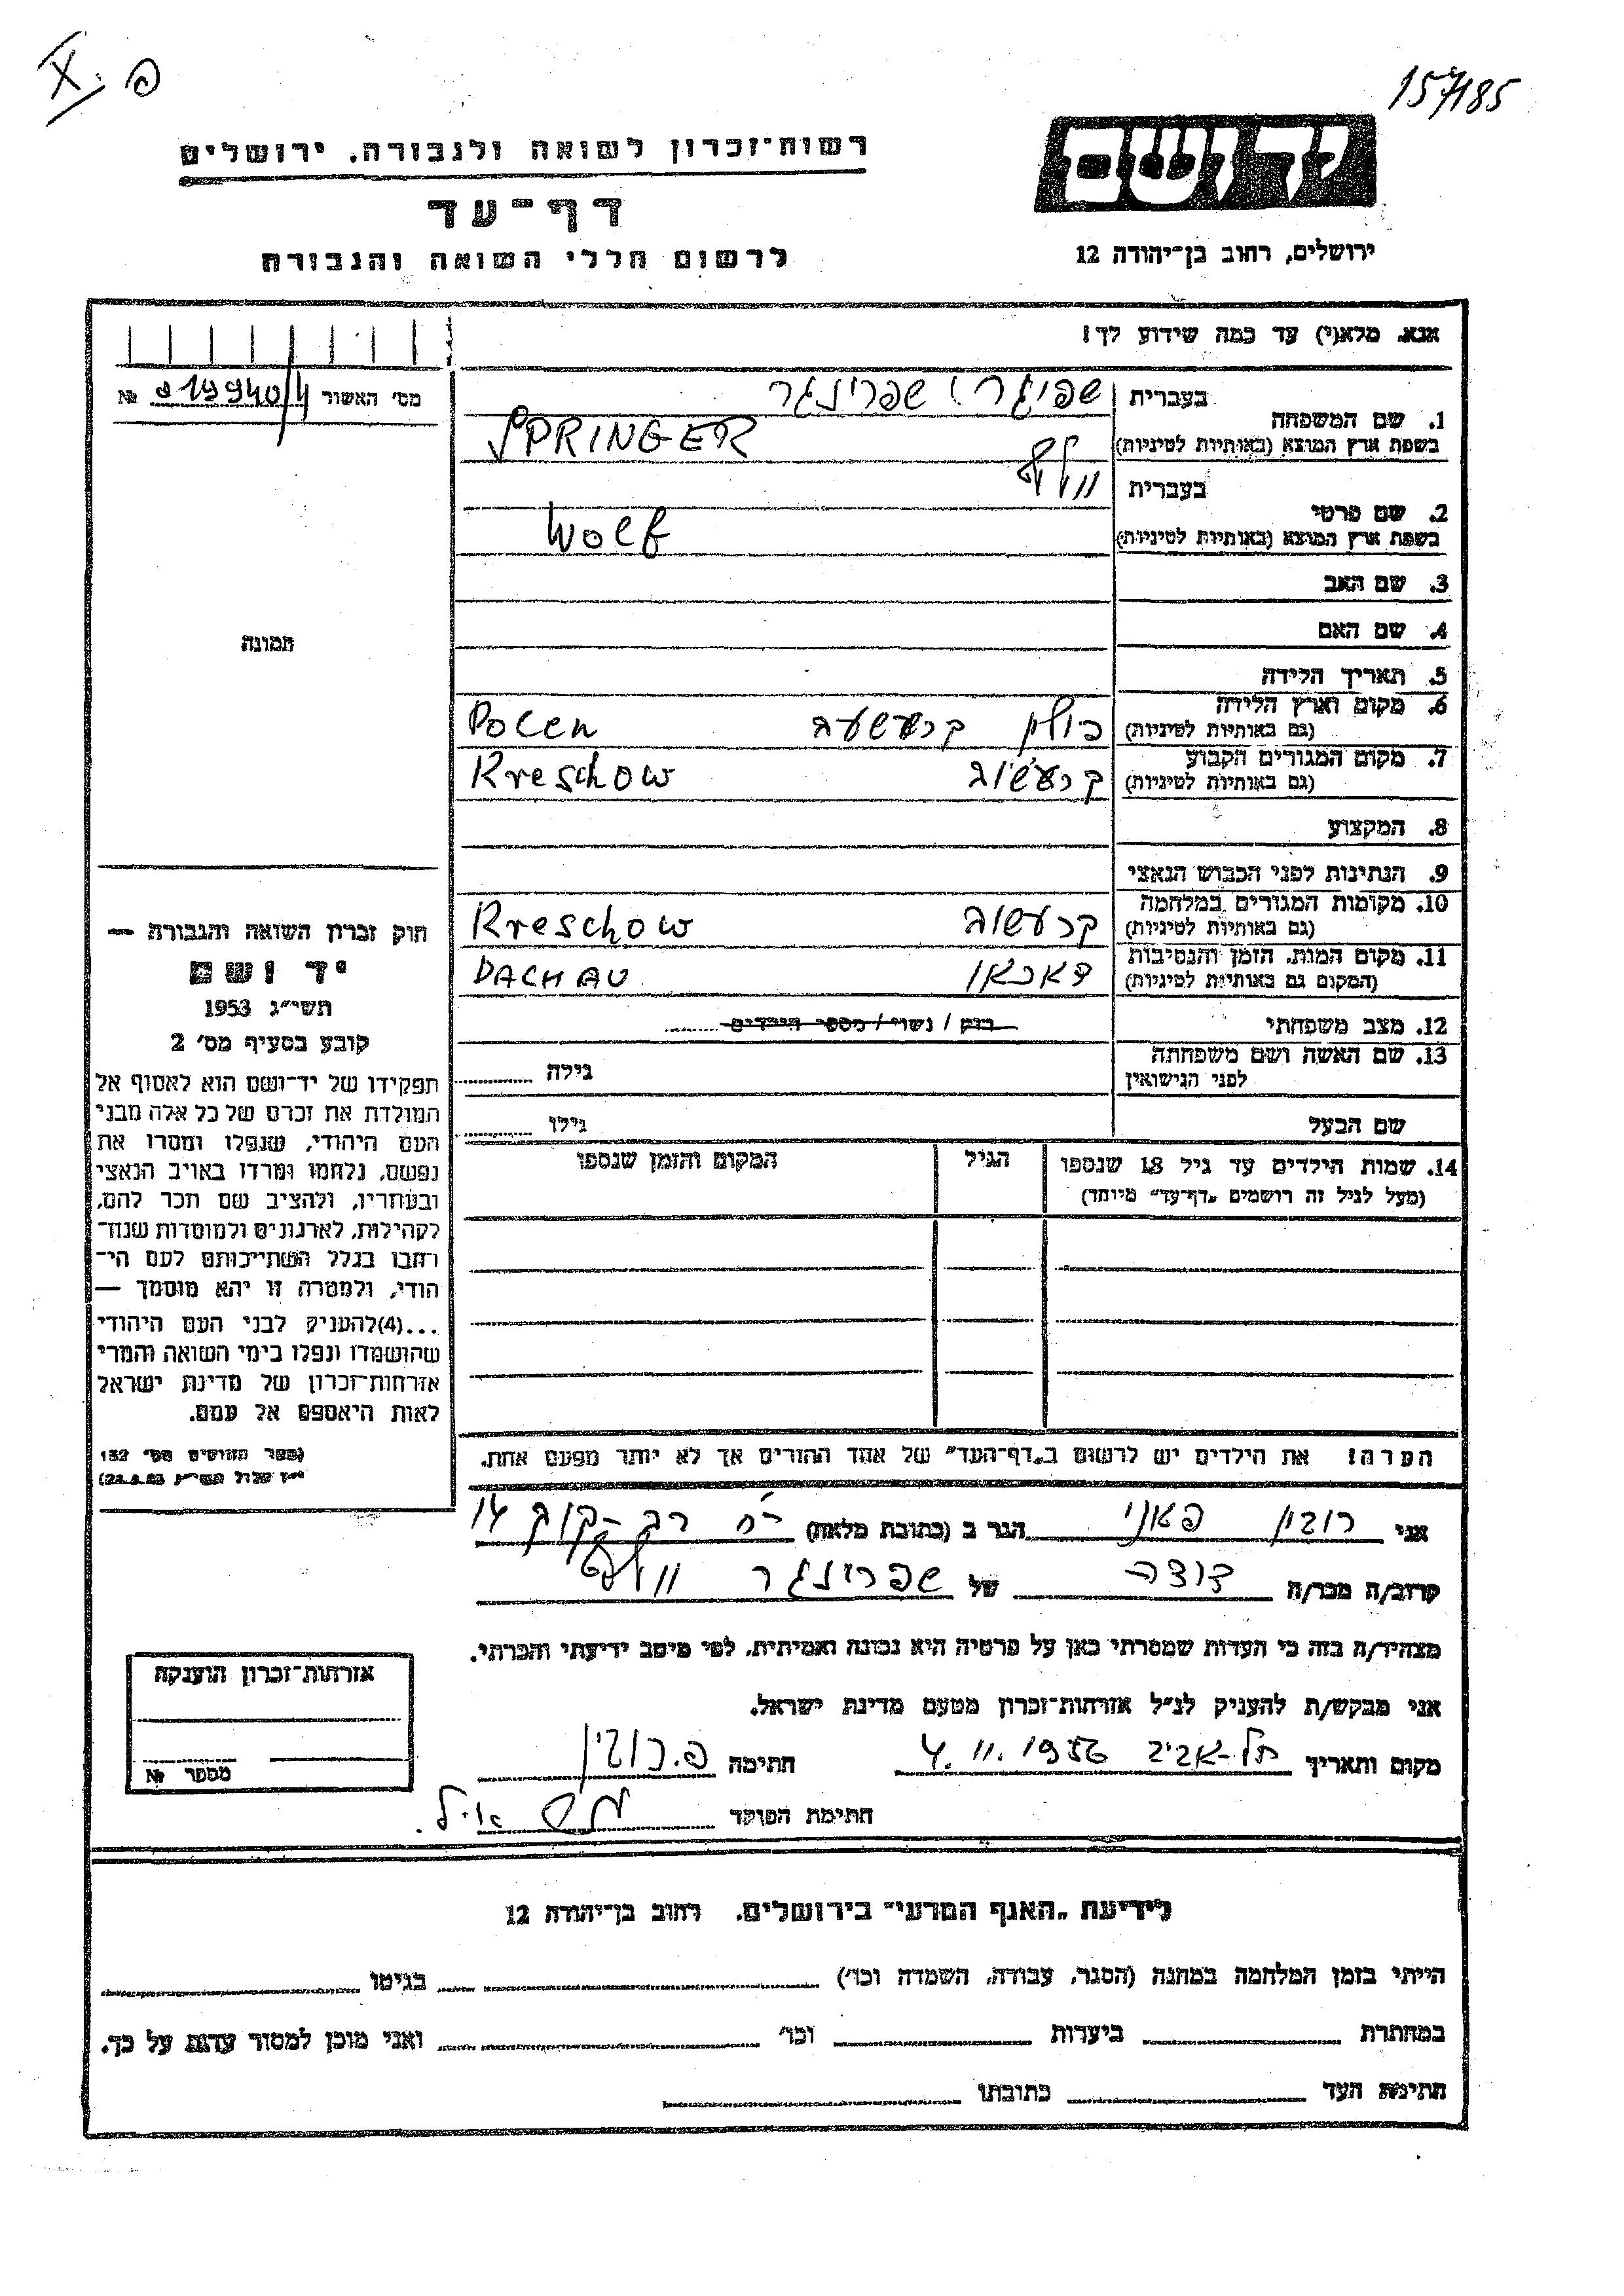 157/185
רשות־זכרון לשואה ולגבורה, ירושלים
דף־עד
לרשום חללי השואה והגבורה
יד ושם
ירושלים, רחוב בן־יהודה 12
אנא, מלא(י) עד כמה שידוע לך!
מס׳ האשור № 019940/4
1. שם המשפחה
בעברית שפרינגר
בשפת ארץ המוצא (באותיות לטיניות) SPRINGER
2. שם פרטי
בעברית וולף
בשפת ארץ המוצא (באותיות לטיניות) Wolf
3. שם האב
4. שם האם
תמונה
5. תאריך הלידה
6. מקום וארץ הלידה
(גם באותיות לטיניות) פולין Polen
7. מקום המגורים הקבוע
(גם באותיות לטיניות) קרעשוב Kreschow
8. המקצוע
9. הנתינות לפני הכבוש הנאצי
10. מקומות המגורים במלחמה
(גם באותיות לטיניות) קרעשוב Kreschow
11. מקום המות, הזמן והנסיבות
(המקום גם באותיות לטיניות) דאכאו DACHAU
12. מצב משפחתי רווק / נשוי / מספר הילדים
13. שם האשה ושם משפחתה
לפני הנישואין גילה
שם הבעל גילו
14. שמות הילדים עד גיל 18 שנספו הגיל המקום והזמן שנספו
(מעל לגיל זה רושמים „דף־עד” מיוחד)
חוק זכרון השואה והגבורה —
יד ושם
תשי״ג 1953
קובע בסעיף מס׳ 2
תפקידו של יד־ושם הוא לאסוף אל
המולדת את זכרם של כל אלה מבני
העם היהודי, שנפלו ומסרו את
נפשם, נלחמו ומרדו באויב הנאצי
ובעוזריו, ולהציב שם וזכר להם,
לקהילות, לארגונים ולמוסדות שנח־
רבו בגלל השתייכותם לעם הי־
הודי, ולמטרה זו יהא מוסמך —
...(4)להעניק לבני העם היהודי
שהושמדו ונפלו בימי השואה והמרי
אזרחות־זכרון של מדינת ישראל
לאות היאספם אל עמם.
(ספר החוקים מס׳ 132
הערה! את הילדים יש לרשום ב„דף־העד” של אחד ההורים אך לא יותר מפעם אחת.
אני רובין פאני הגר ב (כתובת מלאה) רח׳ רב-קוק 14
קרוב/ה מכר/ה דודה של שפרינגר וולף
מצהיר/ה בזה כי העדות שמסרתי כאן על פרטיה היא נכונה ואמיתית, לפי מיטב ידיעתי והכרתי.
אני מבקש/ת להעניק לנ״ל אזרחות־זכרון מטעם מדינת ישראל.
מקום ותאריך תל-אביב 4.11.1956 חתימה פ. רובין
חתימת הפוקד
אזרחות־זכרון הוענקה
מספר №
לידיעת „האגף המדעי” בירושלים, רחוב בן־יהודה 12
הייתי בזמן המלחמה במחנה (הסגר, עבודה, השמדה וכו׳) בגיטו
במחתרת ביערות וכו׳ ואני מוכן למסור עדות על כך.
חתימת העד כתובתו